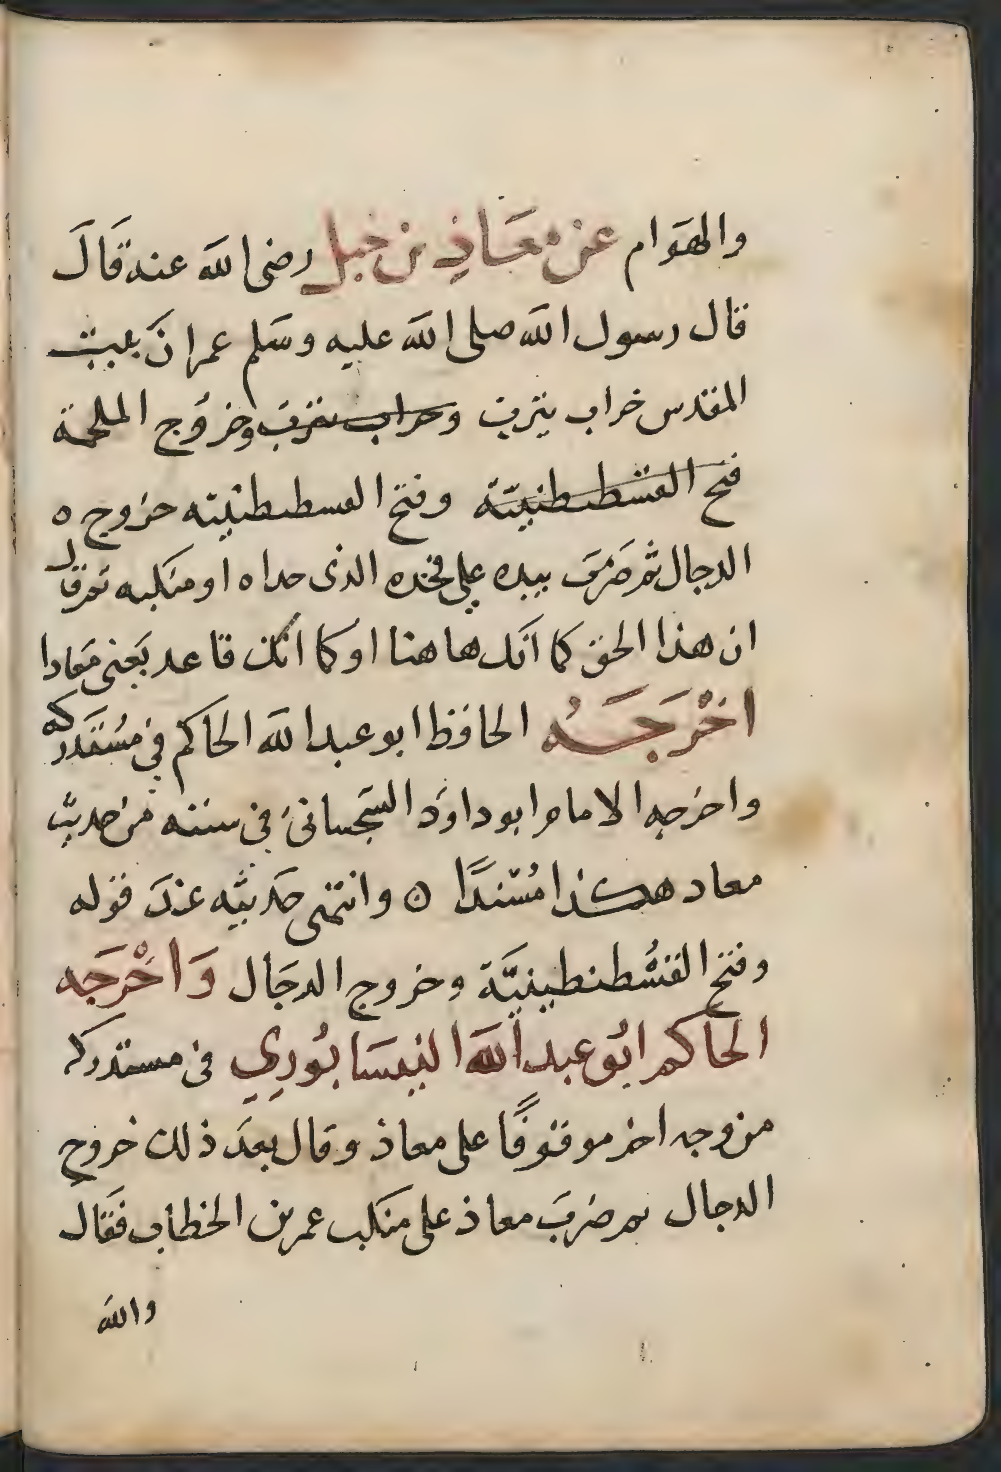 والهوام عن معاذ بن جبل رضي الله عنه قال
قال رسول الله صلى الله عليه وسلم عمران بيت
المقدس خراب يثرب وخراب يثرب وخروج الملحمة
فتح القسطنطينية وفتح القسطنطينيه خروج ه
الدجال ثم ضرب بيده علي فخده الذي حداه او منكبه ثم قال
ان هذا الحق كما انك هاهنا او كما انك قاعد يعني معادا
اخرجه الحافظ ابو عبد الله الحاكم في مستدركه
واخرجه الامام ابو داود السجستاني في سننه من حديث
معاد هكذا مسندا ه وانتهى حديثه عند قوله
وفتح القسطنطينية وخروج الدجال واخرجه
الحاكم ابو عبد الله النيسابوري في مستدركه
من وجه اخر موقوفا على معاذ وقال بعد ذلك خروج
الدجال ثم ضرب معاذ على منكب عمر بن الخطاب فقال
والله